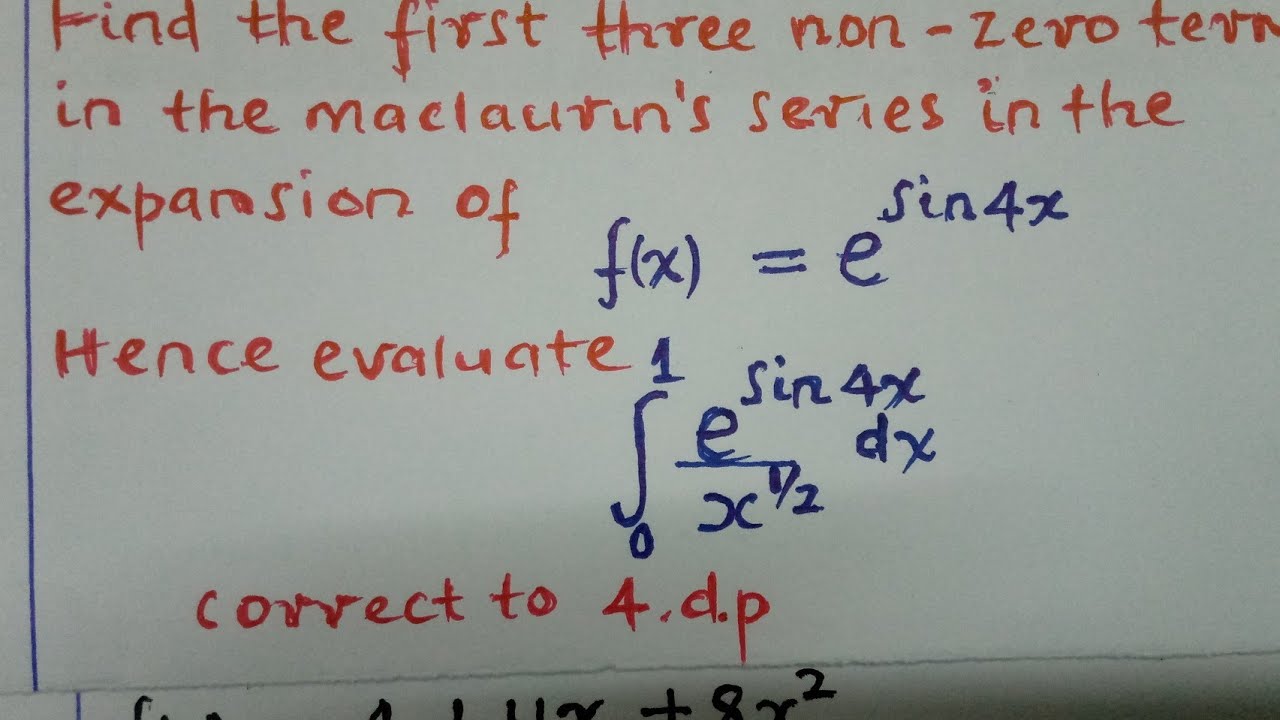 Find the first three non-zero term
in the maclaurin's series in the
expansion of f(x) = e^sin4x
Hence evaluate ∫₀¹ e^sin4x / x^1/2 dx
correct to 4.d.p
1 + 4x + 8x²